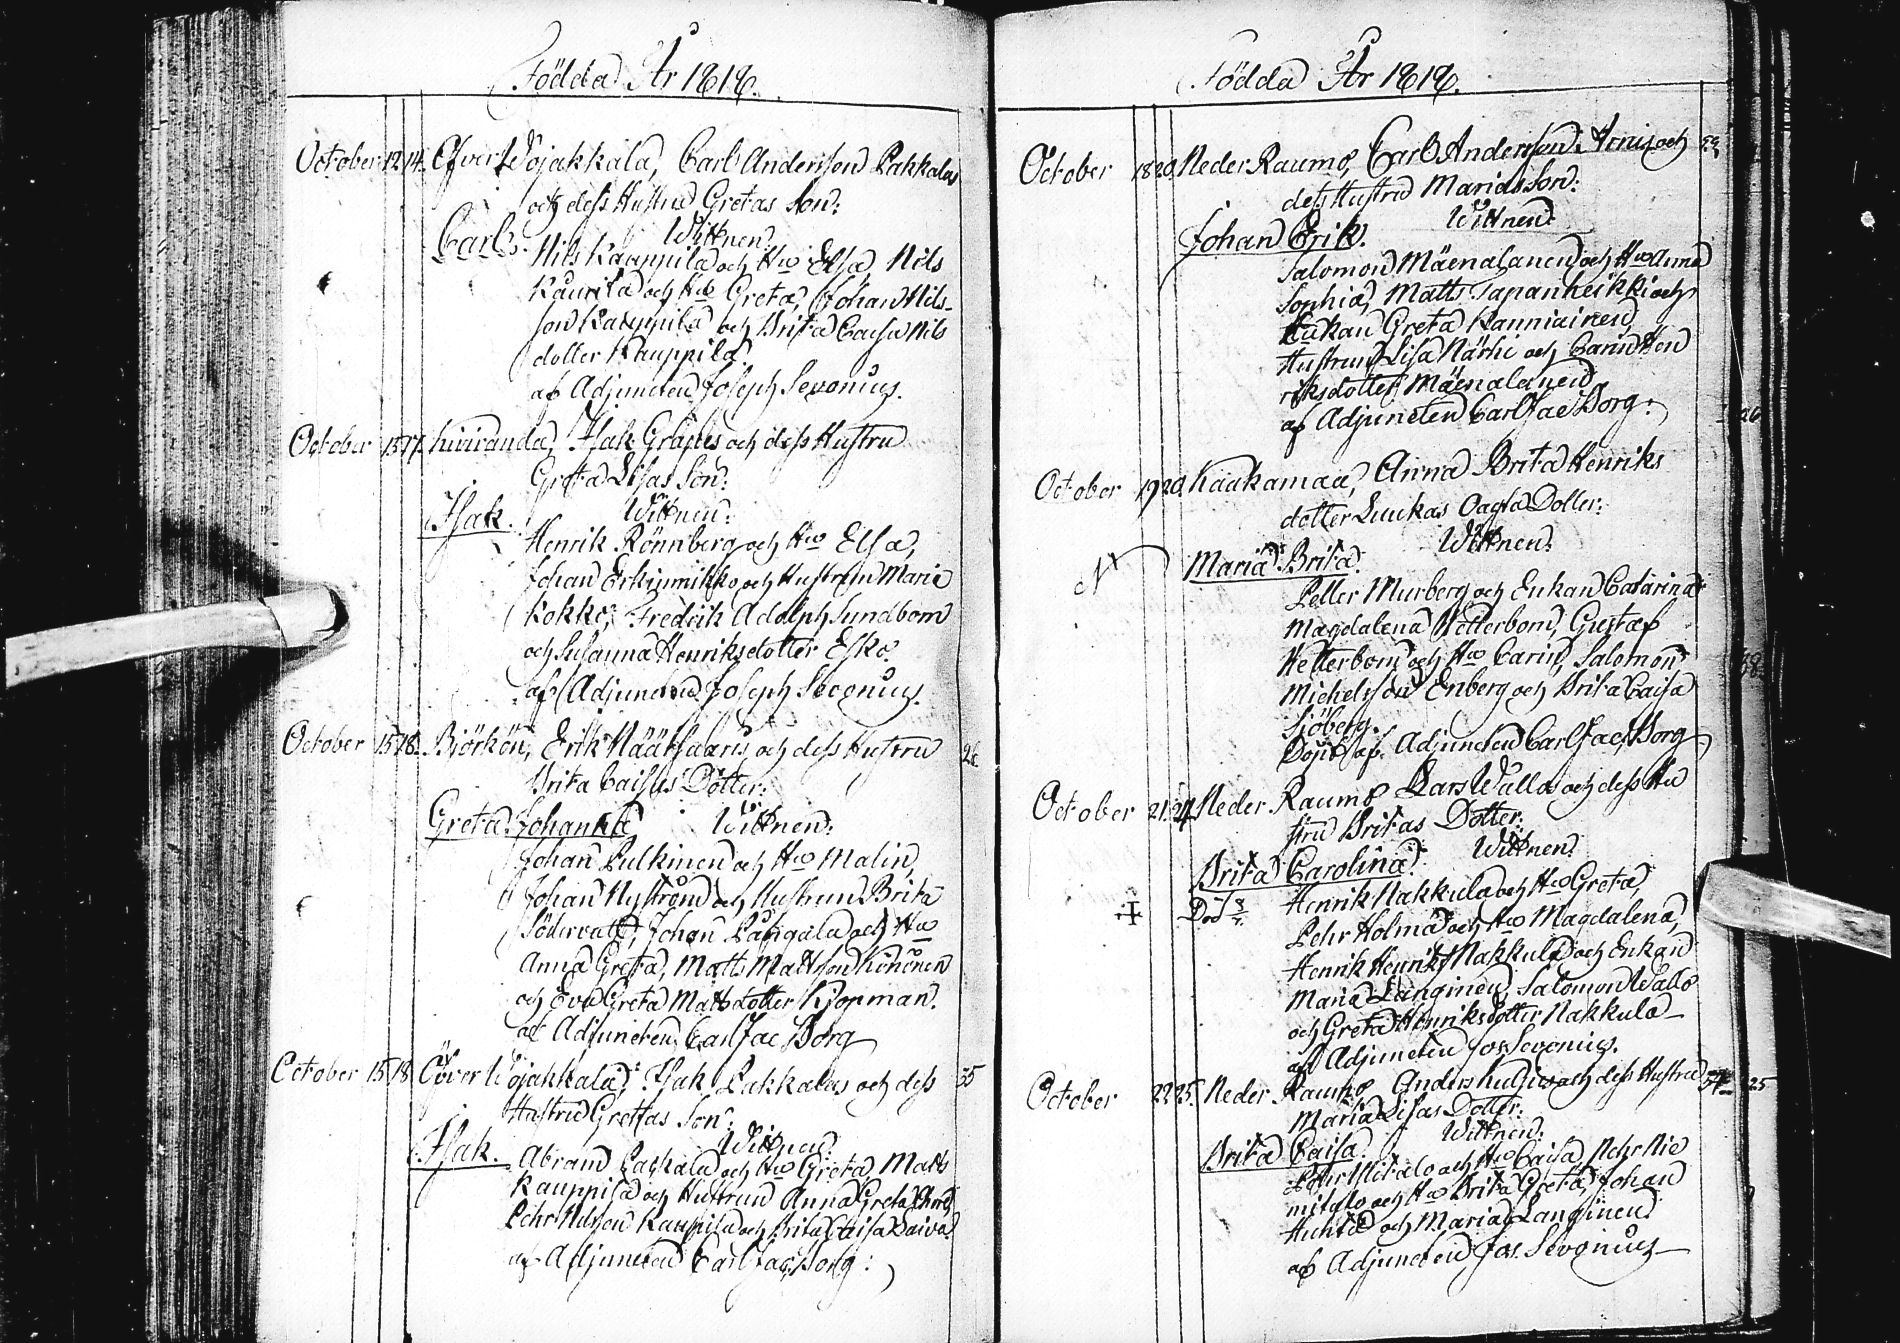 Födda År 1818.
October 12 14. Öfver Wojakkala, Carl Andersson Lakkalas
och dess Hustru Gretas Son:
Carl. Wittnen:
Nils Kauppila och Hu Elsa, Nils
Kaurila och Hu Greta, Johan Nils-
son Kauppila och Brita Caisa Nils
dotter Kauppila.
af Adjuncten Joseph Sevonius.
October 15 17. Kiviranda, Isak Grapes och dess Hustru
Greta Lisas Son:
Isak. Wittnen:
Henrik Rönnberg och Hu Elsa,
Johan Erkinmikko och Hustrun Maria
Kokko, Fredrik Adolph Sundbom
och Susanna Henriksdotter Esko.
af Adjuncten Joseph Sevonius.
October 15 18. Björkön, Erik Näätsaaris och dess Hustru 26.
Brita Caisas Dotter:
Greta Johanna Wittnen:
Johan Pulkinen och Hu Malin,
Johan Nyström och Hustrun Brita
Johan och Hu
Anna Greta, Matts Mattsson Kinonen
och Eva Greta Matsdotter Kjöpman.
af Adjuncten Carl Jac Borg
October 15 18 Öfver Wojakkala, Isak Lakkalas och dess 35
Hustru Gretas Son:
Isak. Wittnen:
Abram Lakkala och Hu Greta, Matts
Kauppila och Hustrun Anna Greta
Pehr Nilsson Kauppila och Brita Caisa
af Adjuncten Carl Jac Borg:
Födda År 1818.
October 18 20. Neder Raumo, Carl Andersson och
dess Hustru Marias Son:
Johan Erik. Wittnen:
Salomon Mäenalanen och Hu Anna
Sophia, Matts Tapanheikki och
Enkan Greta Kanniainen,
Hustrun Lisa Närhi och Carin Hen
riksdotter Mäenalanen
af Adjuncten Carl Jac Borg: 26
October 19 20. Kaakamaa, Anna Brita Henriks
dotter Luukas Oagta Dotter:
Maria Brita. Wittnen:
Petter Murberg och Enkan Catarina
Magdalena Wetterbom, Gustaf
Wetterbom och Hu Carin, Salomon 38
Michelsson Enberg och Brita Caisa
Sjöberg.
Döpt af Adjuncten Carl Jac Borg
October 21 24. Neder Raumo Lars Wallos och dess Hu
stru Britas Dotter:
Brita Carolina. Wittnen:
Henrik Nakkula och Hu Greta,
Död Pehr Holma och Hu Magdalena,
Henrik Henriks Nakkula och Enkan
Maria Langinen, Salomon Wallo
och Greta Henriksdotter Nakkula
af Adjuncten Jos Sevonius.
October 22 25. Neder Raumo Anders och dess Hustru 25
Maria Lisas Dotter:
Brita Caisa. Wittnen:
Pehr Mitalo och Hu Caisa, Pehr Nie
mitalo och Hu Brita Greta, Johan
Huhta och Maria Langinen
af Adjuncten Jos. Sevonius